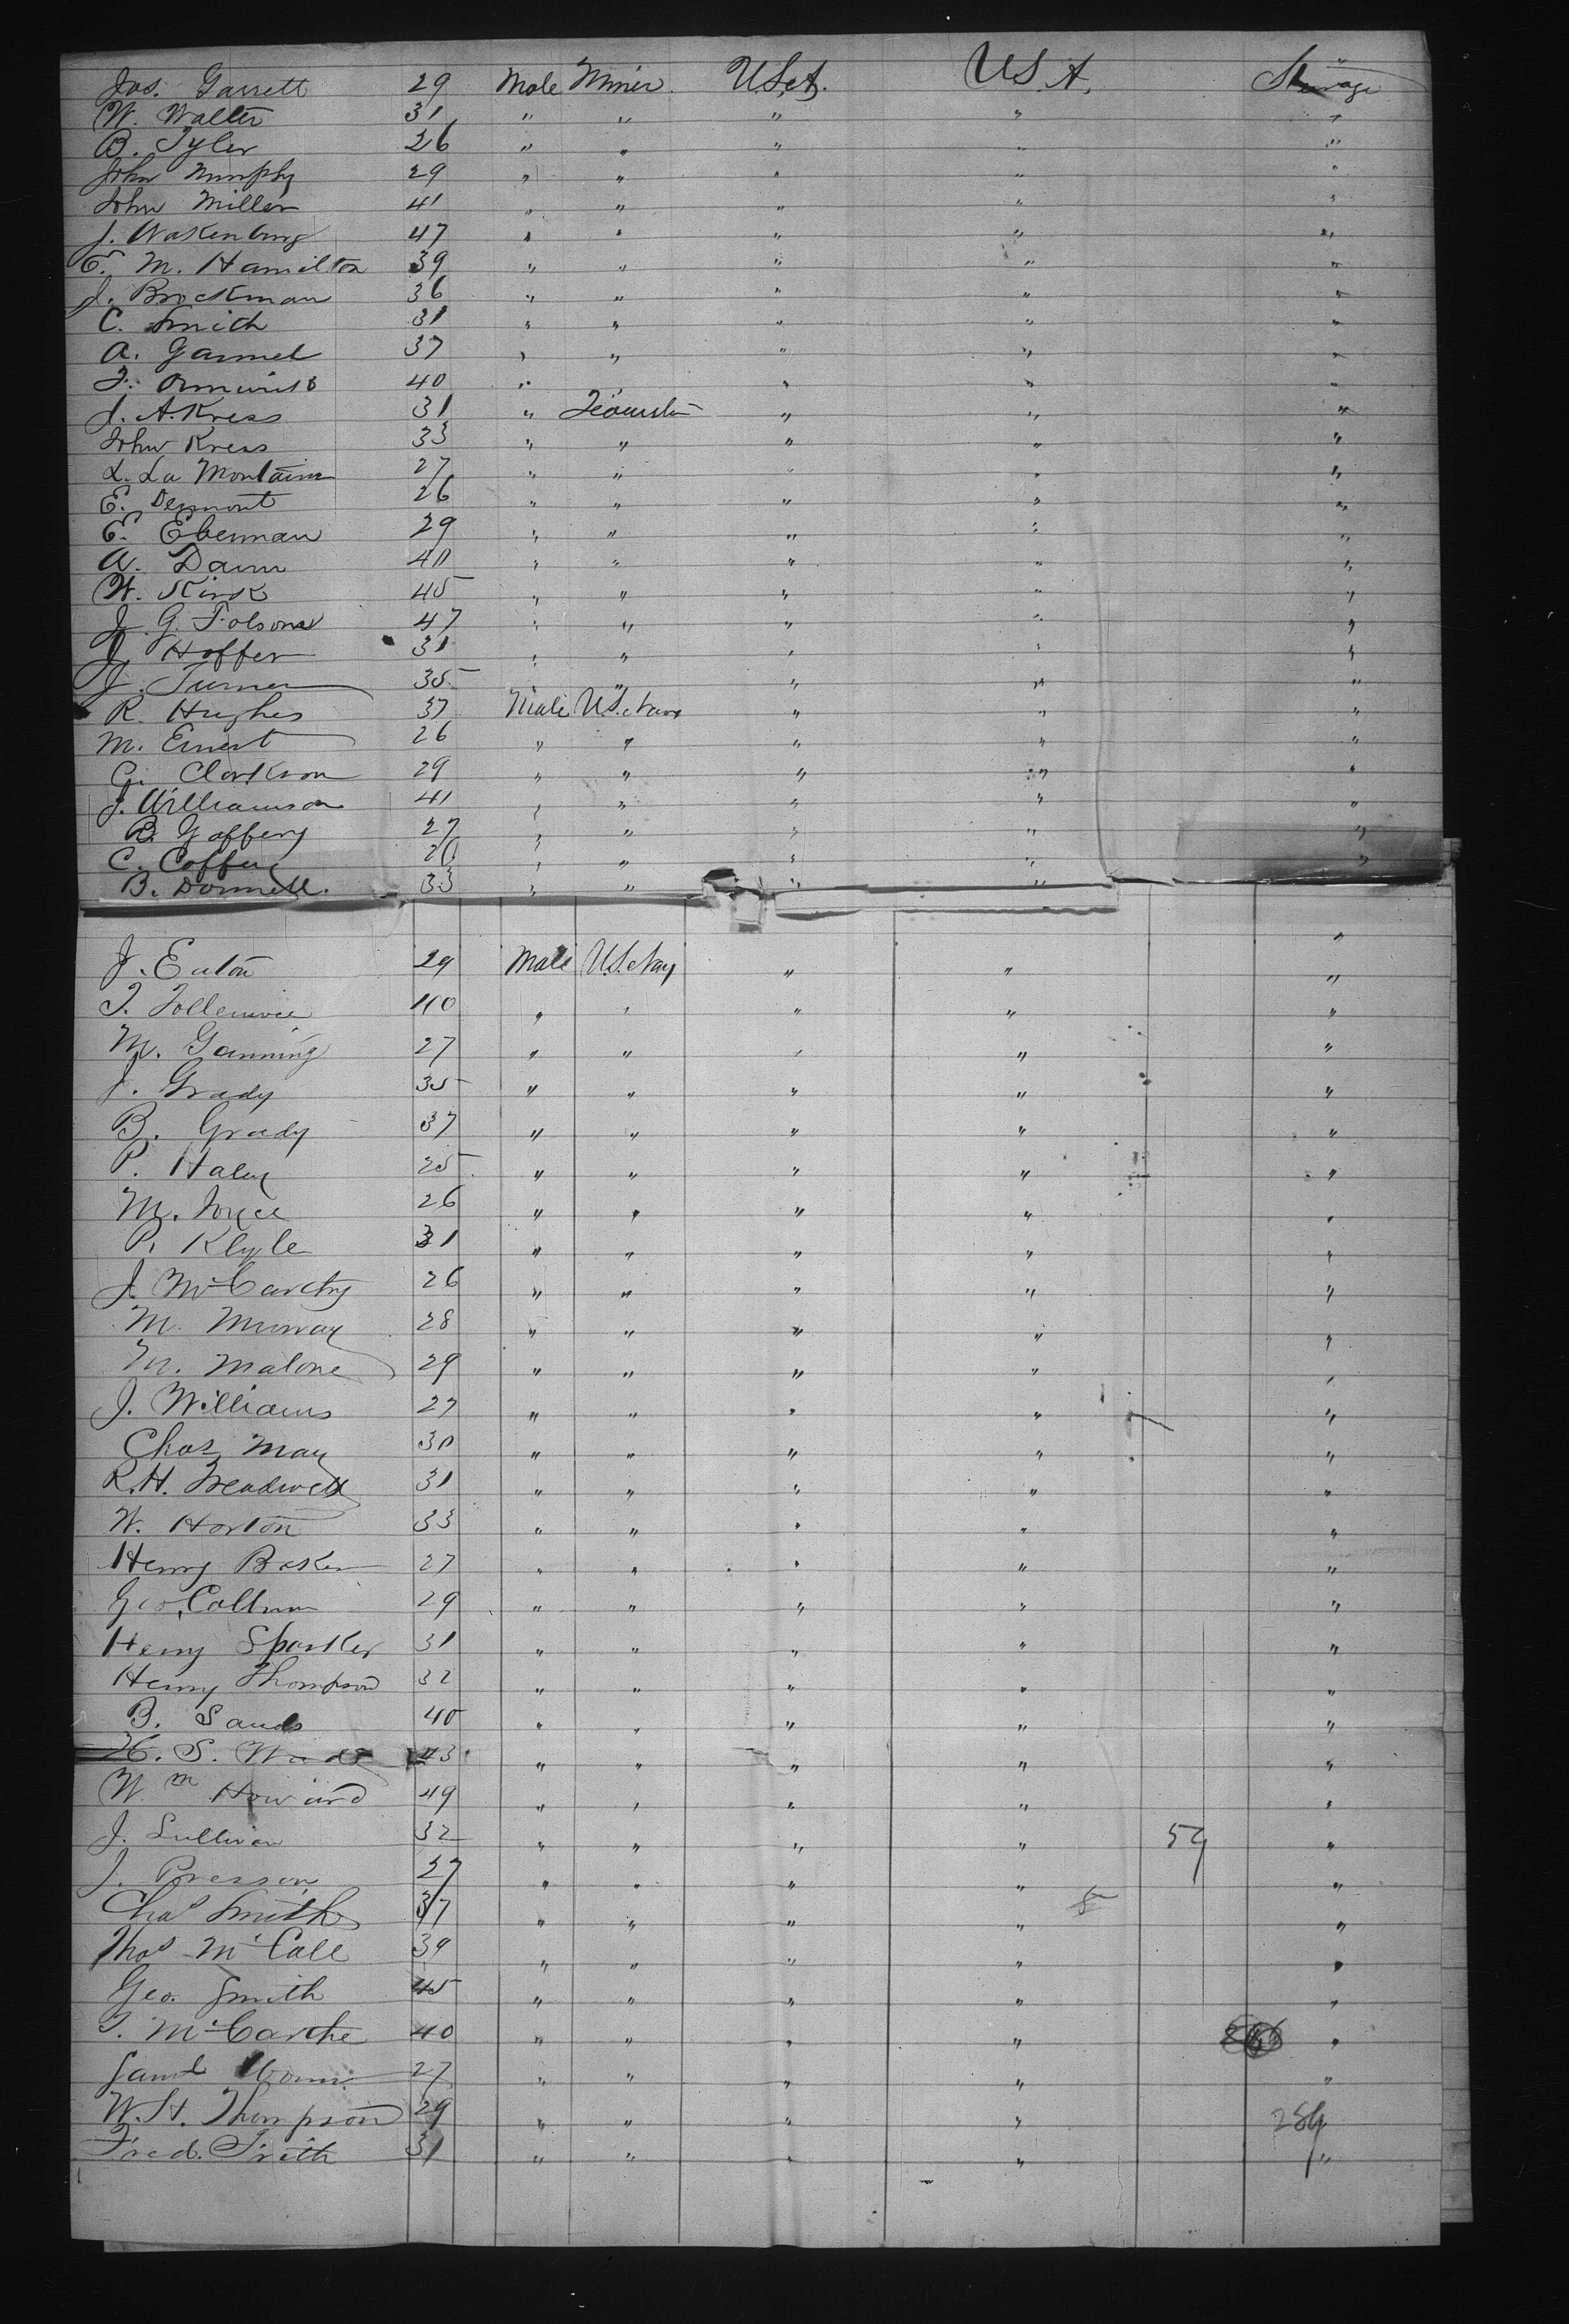 Jas. Garrett 29 Male Miner U.S.A. U S A. Steerage
W. Walter 31 " " " " "
B. Tyler 26 " " " " "
John Murphy 29 " " " " "
John Miller 41 " " " " "
J. Wakenburg 47 " " " " "
E. M. Hamilton 39 " " " " "
J. Brockman 36 " " " " "
C. Smich 31 " " " " "
A. Garmel 37 " " " " "
40 " " " "
J. A. Kress 31 " " " "
John Kress 33 " " " " "
L. La Montaine 27 " " " " "
E. Dermont 26 " " " " "
E. Eberman 29 " " " " "
A. Dann 40 " " " " "
W. Kirk 45 " " " " "
J. G. Folsom 47 " " " " "
J. Hoffer 31 " " " " "
J. Turner 35 " " " " "
R. Hughes 37 Male U.S. Navy " " "
M. Ernest 26 " " " " "
G. Clarkson 29 " " " " "
J. Williamson 41 " " " " "
B. Gaffery 27 " " " " "
C. Coffey 26 " " " " "
B. Donnell. 33 " " " " "
J. Eaton 29 Male U.S. Navy " " "
T. 40 " " " " "
M. Ganning 27 " " " " "
J. Grady 35 " " " " "
B. Grady 37 " " " " "
P. Haley 25 " " " " "
M. Joyce 26 " " " " "
P. Klyle 31 " " " " "
J. McCarthy 26 " " " " "
M. Murray 28 " " " " "
M. Malone 29 " " " " "
J. Williams 27 " " " " "
Chas May 30 " " " " "
R. H. Treadwell 31 " " " " "
W. Horton 33 " " " " "
Henry Baker 27 " " " " "
Geo. Collman 29 " " " " "
Henry Sparker 31 " " " " "
Henry Thompson 32 " " " " "
B. Sands 40 " " " " "
H. S. Wade 43 " " " " "
Wm Howard 49 " " " " "
J. Sullivan 32 " " " " 59 "
J. Presson 27 " " " " "
Chas Smith 37 " " " " "
Thos McCall 39 " " " " "
Geo. Smith 45 " " " " "
T. McCarthe 40 " " " " "
Saml 27 " " " " "
W. H. Thompson 29 " " " " 284
Fred. Frith 31 " " " " "